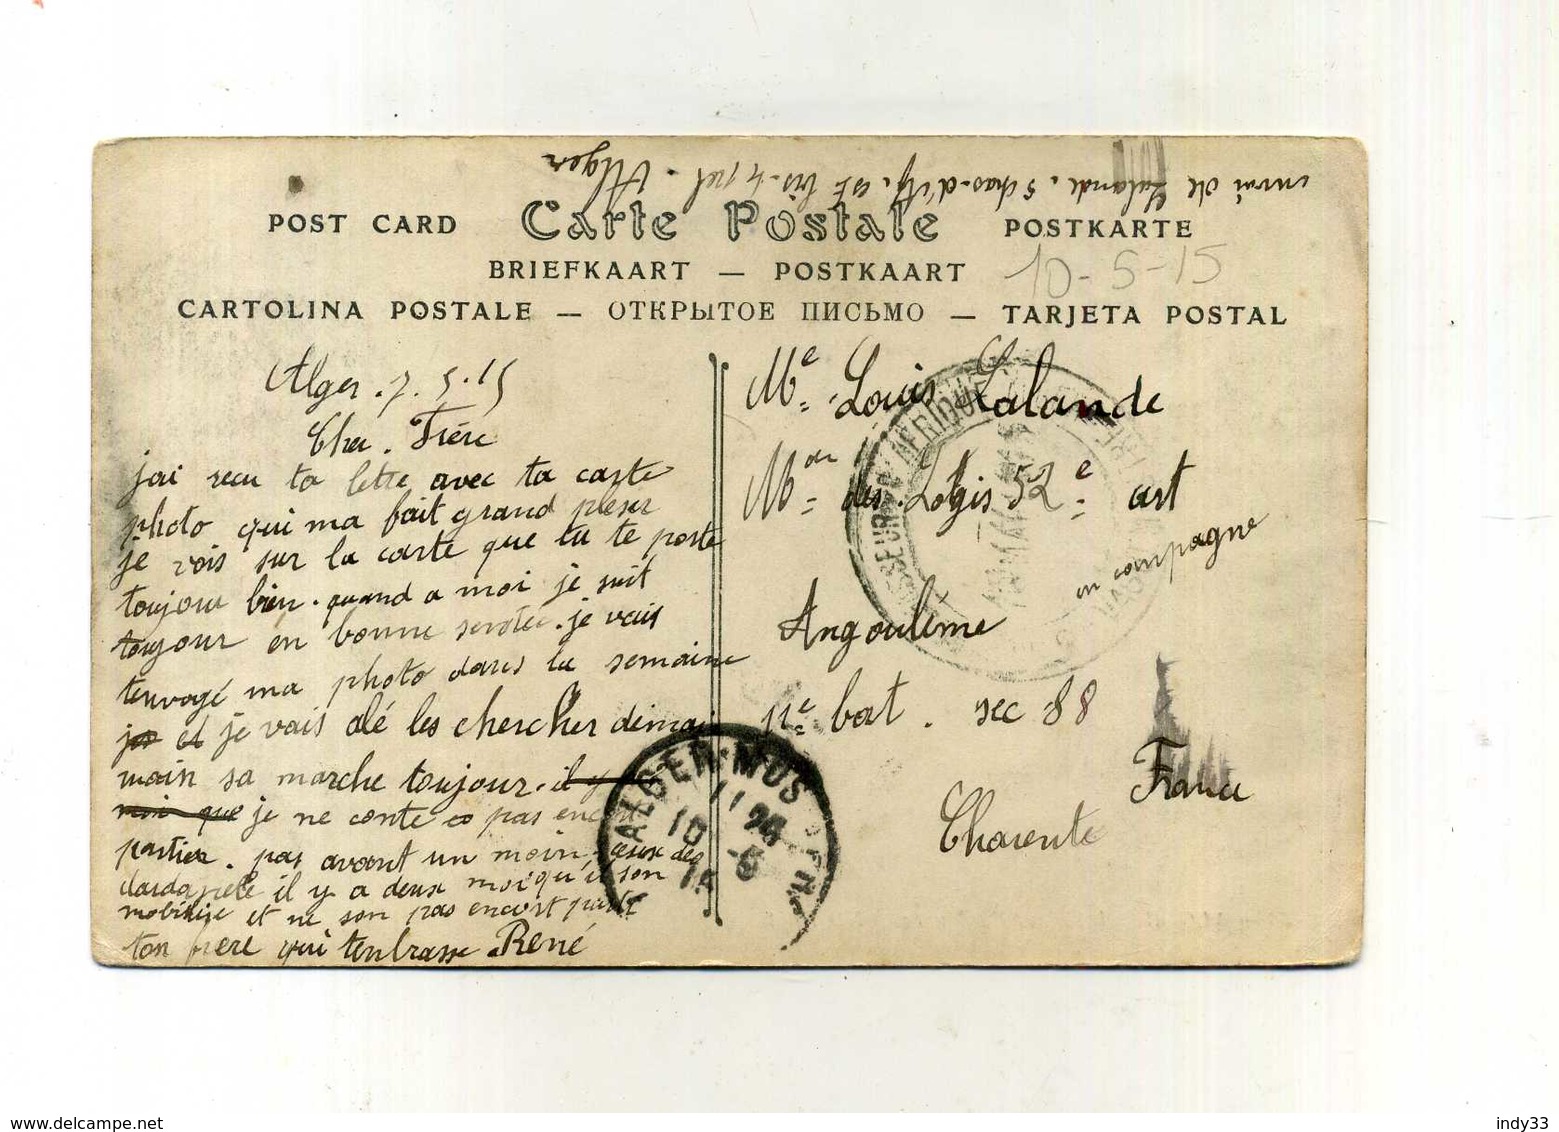 envoi de Lalande. 5 chas-d'Af. Alger
POST CARD Carte Postale POSTKARTE
BRIEFKAART — POSTKAART
10-5-15
CARTOLINA POSTALE — ОТКРЫТОЕ ПИСЬМО — TARJETA POSTAL
Alger. 7.5.15
Cher. Frére
jai recu ta lette avec ta carte
photo qui ma fait grand plesir
je vois sur la carte que tu te porte
toujour bien. quand a moi je suit
toujour en bonne je vais
ma photo dans la semaine
et je vais alé les chercher demai
main sa marche toujour. il y
moi que je ne conte pas
partier. pas avant un moin ceux des
dardanèle il y a deux moi qu'il son
mobilise et ne son pas encort
ton frere qui tenbrasse. René
Me. Louis Lalande
Mal des. Logis 52e art
en campagne
Angoulême
11e bat. sec 88
France
Charente
ALGER-MUSTAPHA
11 20
10 -5
15
indy33